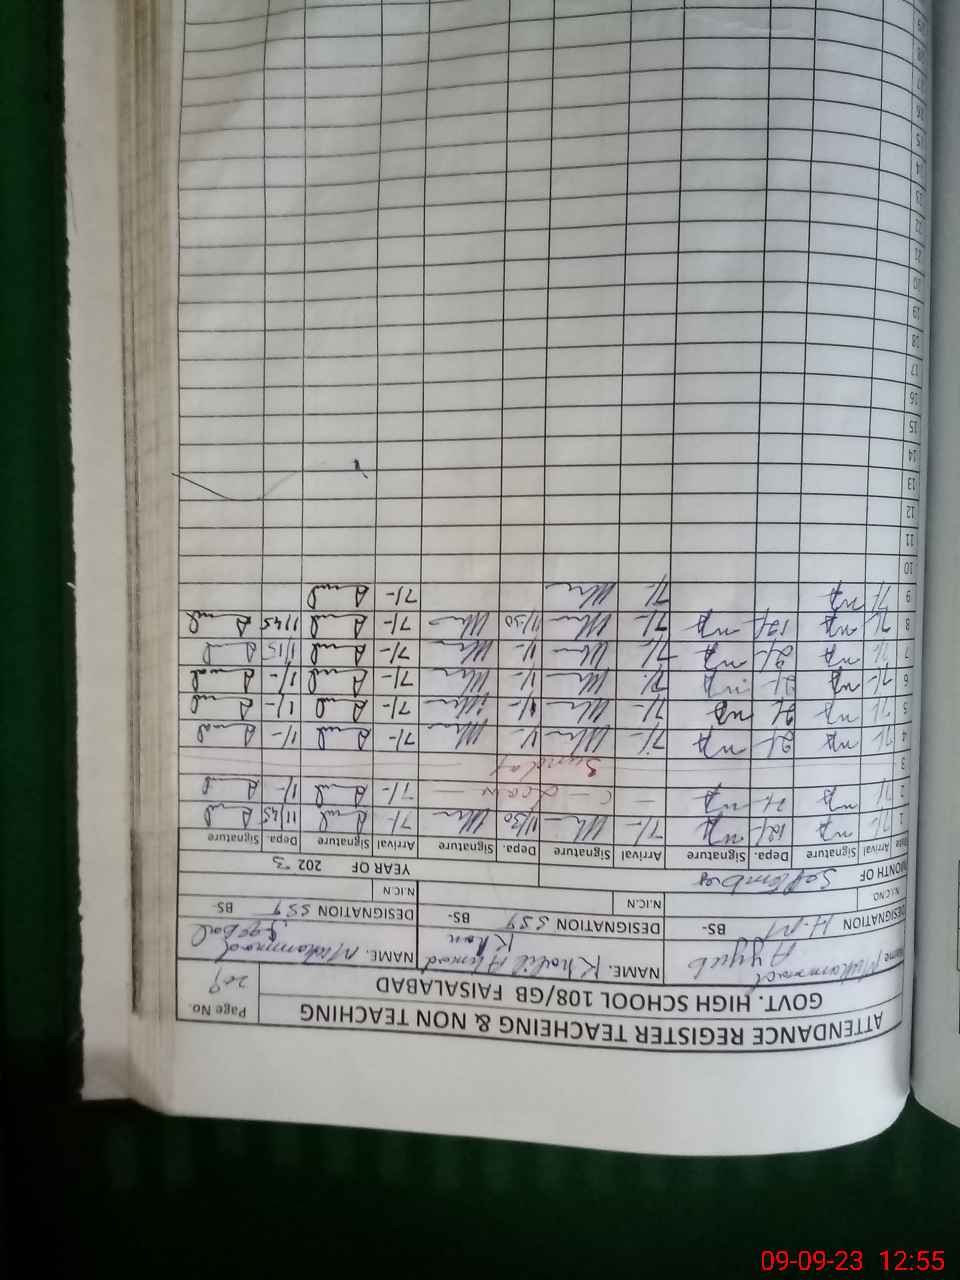 ATTENDANCE REGISTER TEACHEING & NON TEACHING
GOVT. HIGH SCHOOL 108/GB FAISALABAD
Page No. 209
Name Muhammad Ayyub NAME. Khalil Ahmad Khan NAME. Muhammad Iqbal
DESIGNATION H.M BS- DESIGNATION SST BS- DESIGNATION SST BS-
N.I.C.NO N.I.C.N N.I.C.N
MONTH OF September YEAR OF 2023
Date Arrival Signature Depa. Signature Arrival Signature Depa. Signature Arrival Signature Depa. Signature
1 7/- 12/- 7/- 11/30 7/- 11/45
2 7/- 2/- C - Leave - 7/- 1/-
3 Sunday
4 7/- 2/- 7/- 1/- 7/- 1/-
5 7/- 2/- 7/- 1/- 7/- 1/-
6 7/- 2/- 7/- 1/- 7/- 1/-
7 7/- 2/- 7/- 1/- 7/- 1/15
8 7/- 12/- 7/- 11/30 7/- 11/45
9 7/- 7/- 7/-
10
11
12
13
14
15
16
17
18
19
20
21
22
23
24
25
26
27
28
29
09-09-23 12:55